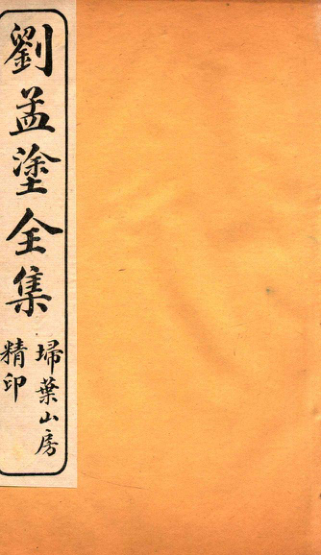 劉孟塗全集
埽葉山房
精印